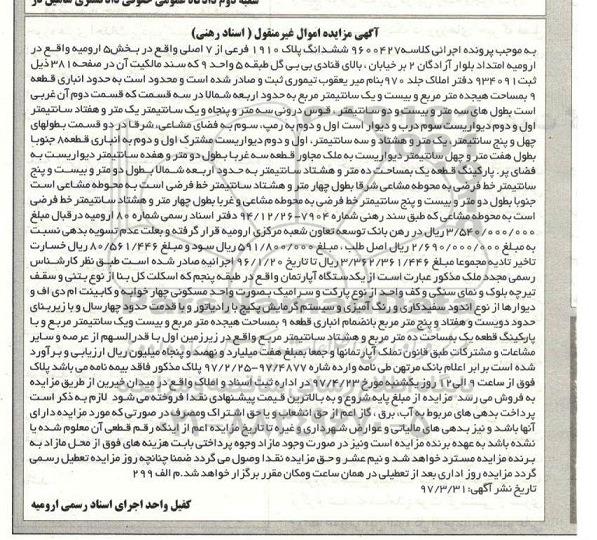 شعبه دوم دادگاه عمومی حقوقی دادگستری شاهین دژ
آگهی مزایده اموال غیرمنقول ( اسناد رهنی)
به موجب پرونده اجرائی کلاسه ۹۶۰۰۴۲۷ ششدانگ پلاک ۱۹۱۰ فرعی از ۷ اصلی واقع در بخش۵ ارومیه واقع در
ارومیه امتداد بلوار آزادگان ۲ بر خیابان ، بالای قنادی بی بی گل طبقه ۵ واحد ۹ که سند مالکیت آن در صفحه ۳۸۱ ذیل
ثبت ۹۳۴۰۹۱ دفتر املاک جلد ۹۷۰ بنام میر یعقوب تیموری ثبت و صادر شده است و محدود است به حدود انباری قطعه
۹ بمساحت هیجده متر مربع و بیست و یک سانتیمتر مربع به حدود اربعه شمالا در سه قسمت که قسمت دوم آن غربی
است بطول های سه متر و بیست و پنج سانتیمتر ، قوس درونی سه متر و پنجاه و یک سانتیمتر یک متر و هفتاد سانتیمتر
اول و دوم دیواریست سوم درب و دیوار است اول و دوم به رمپ، سوم به فضای مشاعی، شرقا در دو قسمت بطولهای
چهل و پنج سانتیمتر، یک متر و هشتاد و سه سانتیمتر، اول و دوم دیواریست مشترک اول و دوم به انباری قطعه۸ جنوبا
بطول هفت متر و چهل سانتیمتر دیواریست به ملک مجاور قطعه سه غربا بطول دو متر و هفده سانتیمتر دیواریست به
فضای پر. پارکینگ قطعه یک بمساحت ده متر و هشتاد سانتیمتر به حدود اربعه شمالا بطول دو متر و بیست و پنج
سانتیمتر خط فرضی به محوطه مشاعی شرقا بطول چهار متر و هشتاد سانتیمتر خط فرضی است به محوطه مشاعی است
جنوبا بطول دو متر و بیست و پنج سانتیمتر خط فرضی به محوطه مشاعی و غربا بطول چهار متر و هشتاد سانتیمتر خط فرضی
است به محوطه مشاعی که طبق سند رهنی شماره ۷۹۰۴-۹۴/۱۲/۲۶ دفتر اسناد رسمی شماره ۸۰ ارومیه در قبال مبلغ
۳/۵۴۰/۰۰۰/۰۰۰ ریال در رهن بانک توسعه تعاون شعبه مرکزی ارومیه قرار گرفته و بعلت عدم تسویه بدهی نسبت
به مبلغ ۲/۶۹۰/۰۰۰/۰۰۰ ریال اصل طلب ، مبلغ ۵۹۱/۸۰۰/۰۰۰ ریال سود و مبلغ ۸۰/۵۶۱/۴۴۶ ریال خسارت
تاخیر تادیه مجموعا مبلغ ۳/۳۶۲/۳۶۱/۴۴۶ ریال تا تاریخ ۹۶/۱/۲۰ اجرائیه صادر شده است طبق نظر کارشناس
رسمی مجدد ملک مذکور عبارت است از یکدستگاه آپارتمان واقع در طبقه پنجم که اسکلت کل بنا از نوع بتنی و سقف
تیرچه بلوک و نمای سنگی و کف واحد از نوع پارکت و سرامیک بصورت واحد مسکونی چهار خوابه و کابینت ام دی اف و
دیوارها از نوع اندود سفیدکاری و رنگ آمیزی و سیستم گرمایش پکیج با رادیاتور و با قدمت حدود چهارسال و با زیربنای
حدود دویست و هفتاد و پنج متر مربع بانضمام انباری قطعه ۹ بمساحت هیجده متر مربع و بیست ویک سانتیمتر مربع و با
پارکینگ قطعه یک بمساحت ده متر مربع و هشتاد سانتیمتر مربع واقع در زیرزمین اول با قدرالسهم از عرصه و سایر
مشاعات و مشترکات طبق قانون تملک آپارتمانها و جمعا بمبلغ هفت میلیارد و نهصد و پنجاه میلیون ریال ارزیابی و برآورد
شده است برابر اعلام بانک مرتهن طی نامه وارده شماره ۹۷/۴۸۷۷-۹۷/۲/۲۵ پلاک مذکور فاقد بیمه نامه می باشد پلاک
فوق از ساعت ۹ الی ۱۲ روز یکشنبه مورخ ۹۷/۴/۲۳ در اداره ثبت اسناد و املاک واقع در میدان خیرین از طریق مزایده
به فروش می رسد مزایده از مبلغ پایه شروع و به بالاترین قیمت پیشنهادی نقدا فروخته می شود لازم به ذکر است
پرداخت بدهی های مربوط به آب، برق ، گاز اعم از حق انشعاب و یا حق اشتراک ومصرف در صورتی که مورد مزایده دارای
آنها باشد و نیز بدهی های مالیاتی و عوارض شهرداری و غیره تا تاریخ مزایده اعم از اینکه رقم قطعی آن معلوم شده یا
نشده باشد به عهده برنده مزایده است ونیز در صورت وجود مازاد وجوه پرداختی بابت هزینه های فوق از محل مازاد به
برنده مزایده مسترد خواهد شد و نیم عشر و حق مزایده نقدا وصول می گردد ضمنا چنانچه روز مزایده تعطیل رسمی
گردد مزایده روز اداری بعد از تعطیلی در همان ساعت ومکان مقرر برگزار خواهد شد.م الف ۲۹۹
تاریخ نشر آگهی: ۹۷/۳/۳۱
کفیل واحد اجرای اسناد رسمی ارومیه